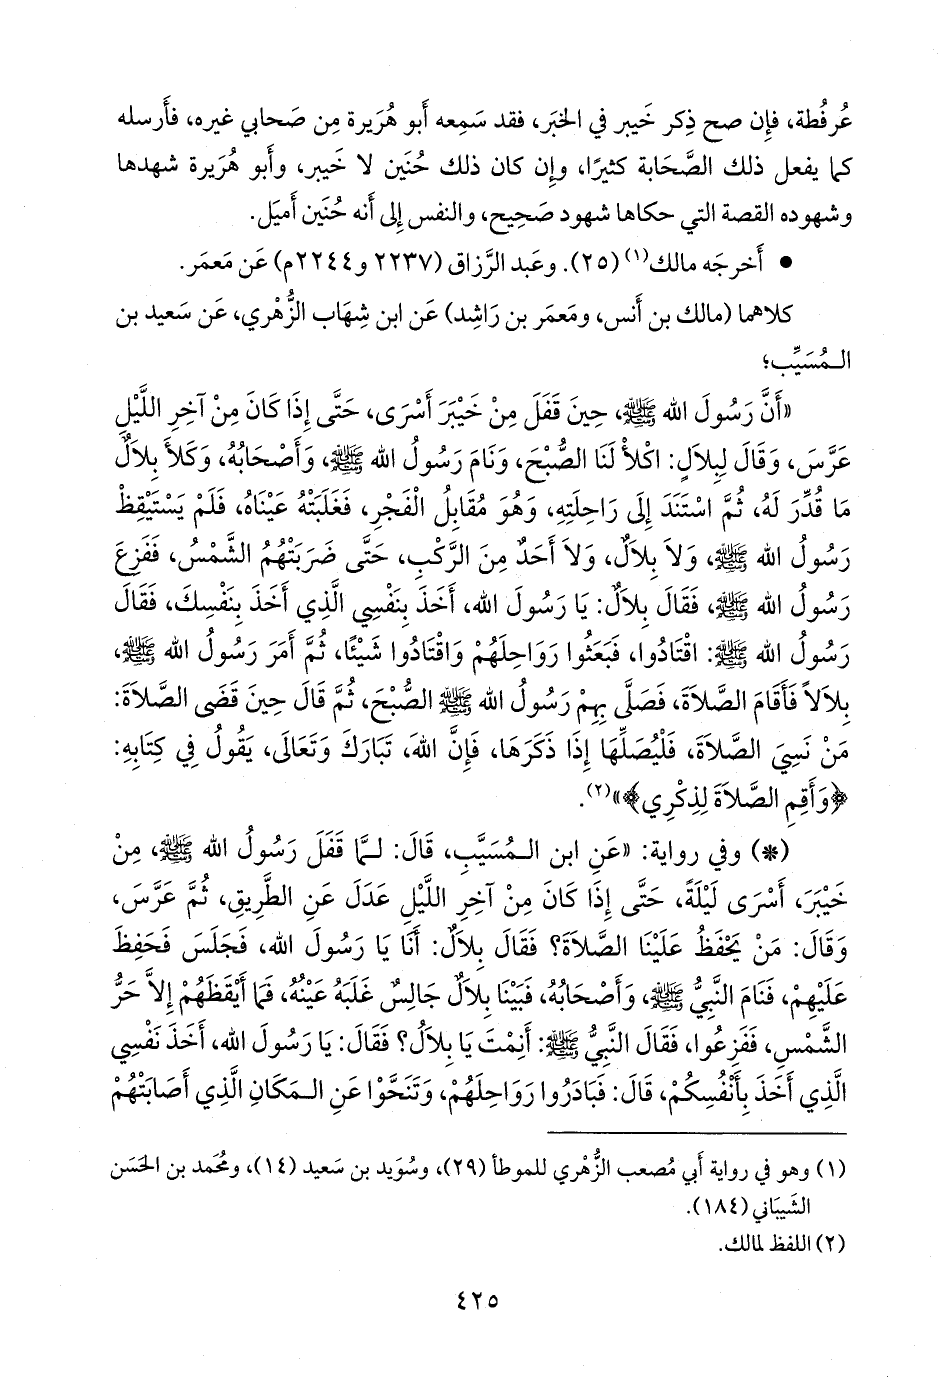 عُرفُطة، فإِن صح ذِكر خَيبر في الخبَر، فقد سَمِعه أَبو هُرَيرة مِن صَحابي غيره، فأَرسله
كما يفعل ذلك الصَّحابة كثيرًا، وإِن كان ذلك حُنَين لا خَيبر، وأَبو هُرَيرة شهدها
وشهوده القصة التي حكاها شهود صَحِيح، والنفس إِلى أَنه حُنَين أَميَل.
• أَخرجَه مالك(١) (٢٥). وعَبد الرَّزاق (٢٢٣٧ و٢٢٤٤م) عَن مَعمَر.
كلاهما (مالك بن أَنس، ومَعمَر بن رَاشد) عَن ابن شِهَاب الزُّهْري، عَن سَعيد بن
الـمُسَيِّب؛
«أَنَّ رَسُولَ الله ﷺ، حِينَ قَفَلَ مِنْ خَيْبَرَ أَسْرَى، حَتَّى إِذَا كَانَ مِنْ آخِرِ اللَّيْلِ
عَرَّسَ، وَقَالَ لِبِلاَلٍ: اكْلأْ لَنَا الصُّبْحَ، وَنَامَ رَسُولُ الله ﷺ، وَأَصْحَابُهُ، وَكَلأَ بِلاَلٌ
مَا قُدِّرَ لَهُ، ثُمَّ اسْتَنَدَ إِلَى رَاحِلَتِهِ، وَهُوَ مُقَابِلُ الْفَجْرِ، فَغَلَبَتْهُ عَيْنَاهُ، فَلَمْ يَسْتَيْقِظْ
رَسُولُ الله ﷺ، وَلاَ بِلاَلٌ، وَلاَ أَحَدٌ مِنَ الرَّكْبِ، حَتَّى ضَرَبَتْهُمُ الشَّمْسُ، فَفَزِعَ
رَسُولُ الله ﷺ، فَقَالَ بِلاَلٌ: يَا رَسُولَ الله، أَخَذَ بِنَفْسِي الَّذِي أَخَذَ بِنَفْسِكَ، فَقَالَ
رَسُولُ الله ﷺ: اقْتَادُوا، فَبَعَثُوا رَوَاحِلَهُمْ وَاقْتَادُوا شَيْئًا، ثُمَّ أَمَرَ رَسُولُ الله ﷺ،
بِلاَلاً فَأَقَامَ الصَّلاَةَ، فَصَلَّى بِهِمْ رَسُولُ الله ﷺ الصُّبْحَ، ثُمَّ قَالَ حِينَ قَضَى الصَّلاَةَ:
مَنْ نَسِيَ الصَّلاَةَ، فَلْيُصَلِّهَا إِذَا ذَكَرَهَا، فَإِنَّ اللهَ، تَبَارَكَ وَتَعَالَى، يَقُولُ فِي كِتَابِهِ:
﴿وَأَقِمِ الصَّلاَةَ لِذِكْرِي﴾»(٢).
(*) وفي رواية: «عَنِ ابن الـمُسَيَّبِ، قَالَ: لـمَّا قَفَلَ رَسُولُ الله ﷺ، مِنْ
خَيْبَرَ، أَسْرَى لَيْلَةً، حَتَّى إِذَا كَانَ مِنْ آخِرِ اللَّيْلِ عَدَلَ عَنِ الطَّرِيقِ، ثُمَّ عَرَّسَ،
وَقَالَ: مَنْ يَحْفَظُ عَلَيْنَا الصَّلاَةَ؟ فَقَالَ بِلاَلٌ: أَنَا يَا رَسُولَ الله، فَجَلَسَ فَحَفِظَ
عَلَيْهِمْ، فَنَامَ النَّبِيُّ ﷺ، وَأَصْحَابُهُ، فَبَيْنَا بِلاَلٌ جَالِسٌ غَلَبَهُ عَيْنُهُ، فَمَا أَيْقَظَهُمْ إِلاَّ حَرُّ
الشَّمْسِ، فَفَزِعُوا، فَقَالَ النَّبِيُّ ﷺ: أَنِمْتَ يَا بِلاَلُ؟ فَقَالَ: يَا رَسُولَ الله، أَخَذَ نَفْسِي
الَّذِي أَخَذَ بِأَنْفُسِكُمْ، قَالَ: فَبَادَرُوا رَوَاحِلَهُمْ، وَتَنَحَّوْا عَنِ الـمَكَانِ الَّذِي أَصَابَتْهُمْ
(١) وهو في رواية أَبي مُصعب الزُّهْري للموطأ (٢٩)، وسُوَيد بن سَعيد (١٤)، ومُحمد بن الحَسَن
الشَيبَاني (١٨٤).
(٢) اللفظ لمالك.
٤٢٥